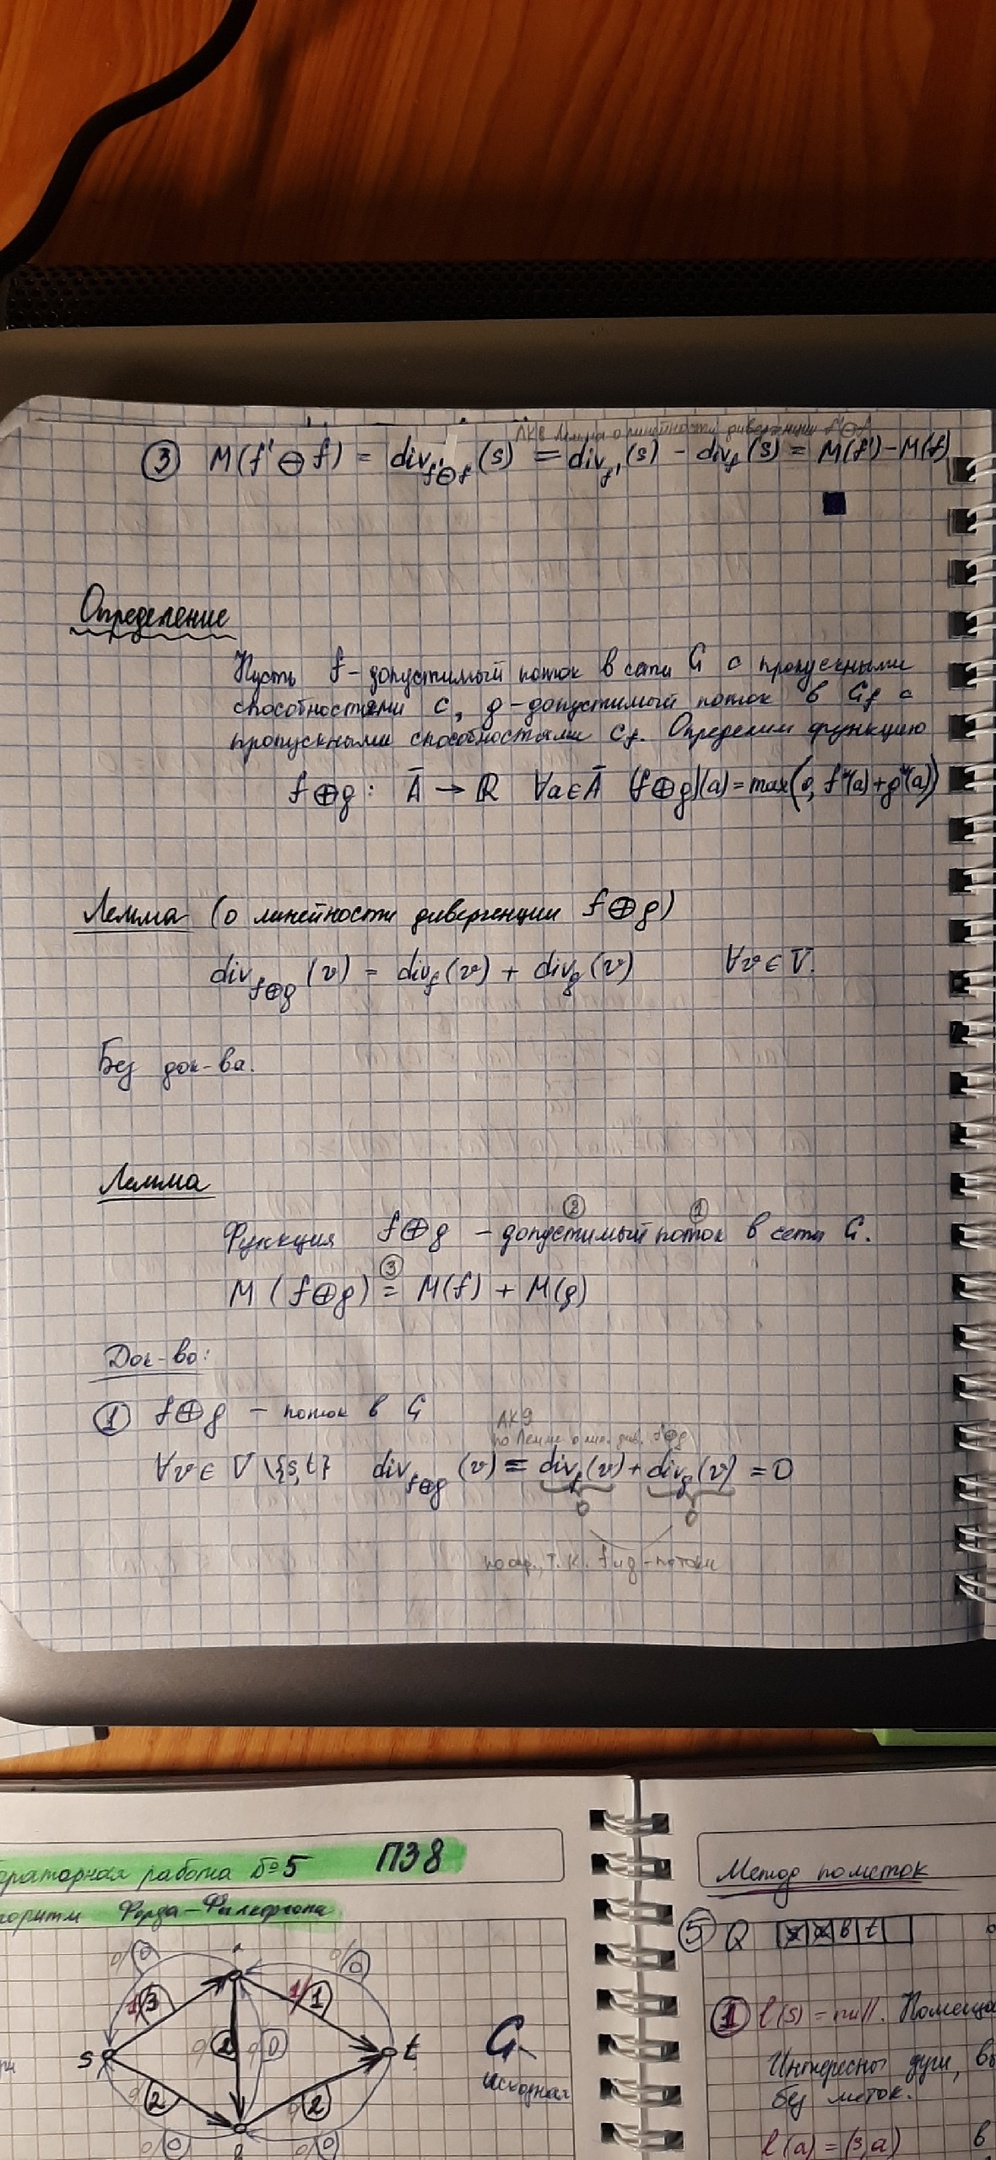 ЛК8 Лемма о линейности дивергенции f'⊖f
③ M(f' ⊖ f) = div_{f'⊖f}(s) = div_{f'}(s) - div_f(s) = M(f') - M(f)
Определение
Пусть f - допустимый поток в сети G с пропускными
способностями c, g - допустимый поток в G_f с
пропускными способностями c_f. Определим функцию
f⊕g : Ā → ℝ ∀a∈Ā (f⊕g)(a) = max(0, f*(a)+g*(a))
Лемма (о линейности дивергенции f⊕g)
div_{f⊕g}(v) = div_f(v) + div_g(v) ∀v∈V.
Без док-ва.
Лемма
② ①
Функция f⊕g - допустимый поток в сети G.
③
M(f⊕g) = M(f) + M(g)
Док-во:
① f⊕g - поток в G
ЛК9
по Лемме о лин. див. f⊕g
∀v∈V\{s,t} div_{f⊕g}(v) = div_f(v) + div_g(v) = 0
0 0
по опр., т.к. f и g - потоки
раторная работа №5 ПЗ 8
горитм Форда-Фалкерсона
0/0 0/0
1/3 1/1
s t
0/2 0/2
0/0 0/0
G
исходная
Метод пометок
⑤ Q a b t
① l(s) = null. Помеща
Интересны дуги, в
без меток.
l(a) = (s,a) в